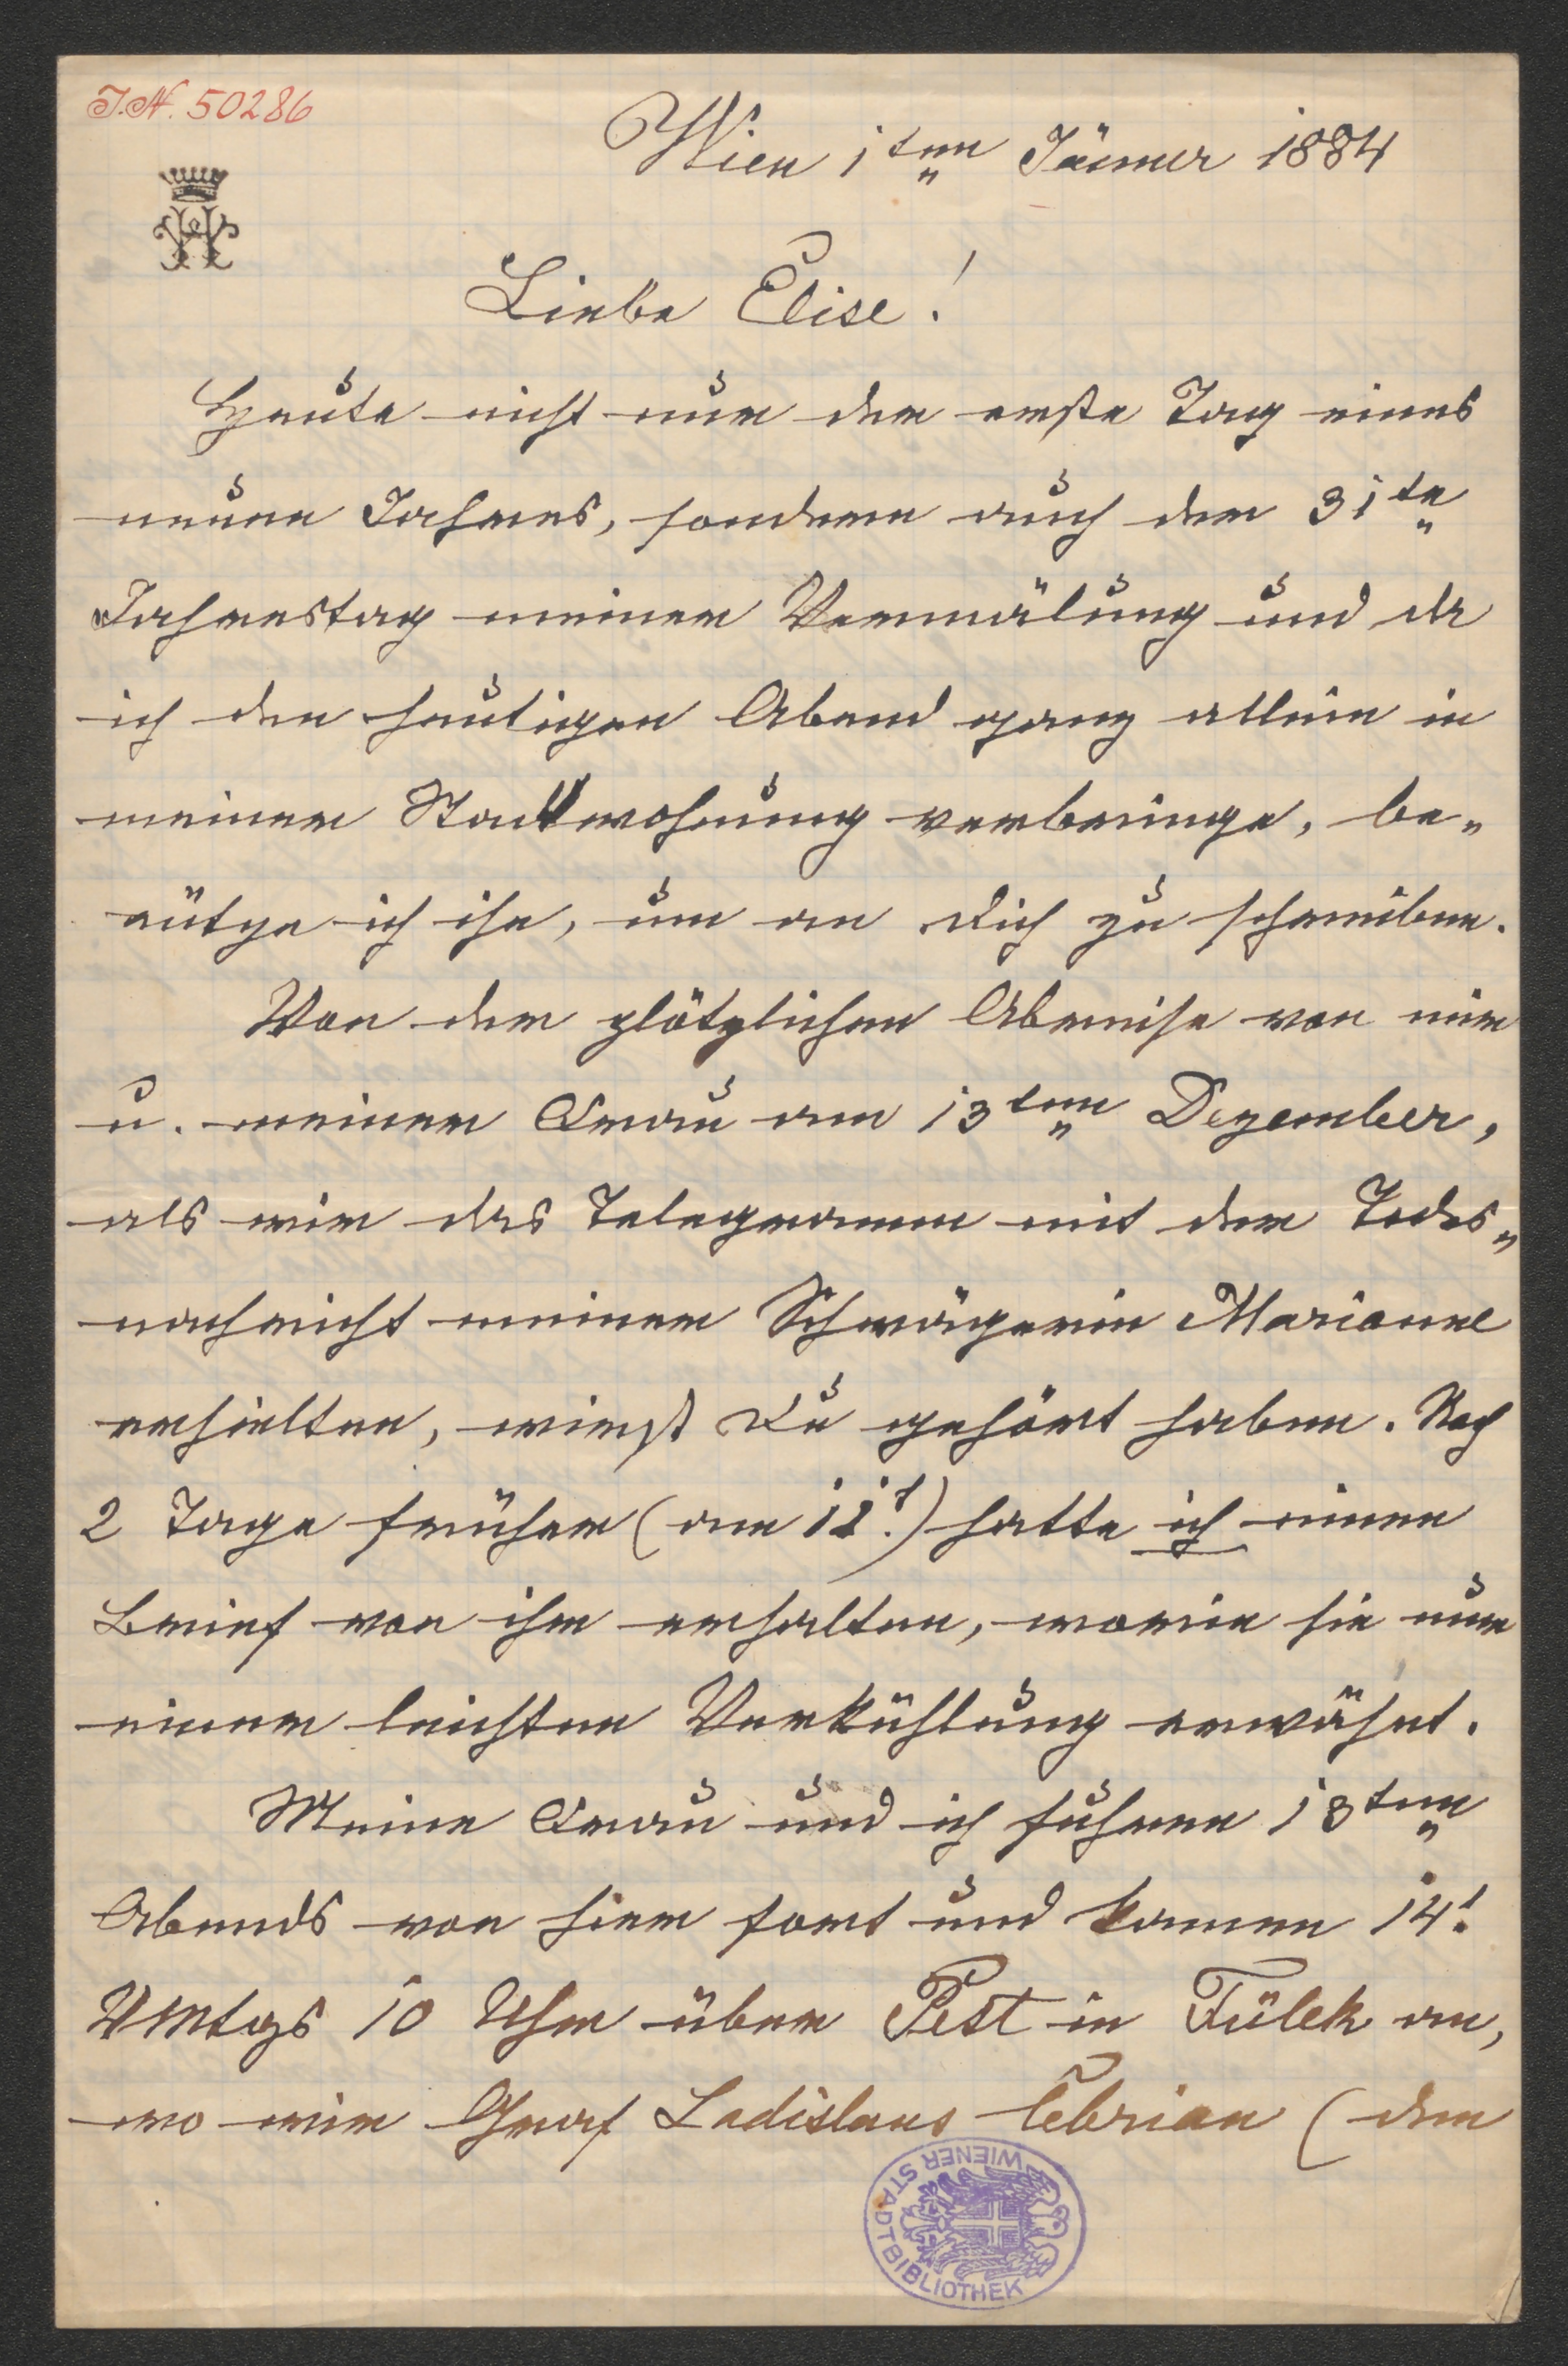 J.N. 50286
Wien 1ten Jänner 1884
Liebe Elise!
Heute nicht nur der erste Tag eines
neuen Jahres, sondern auch der 31te
Jahrestag meiner Vermälung und da
ich den heutigen Abend ganz allein in
meiner Stadtwohnung verbringe, be„
nütze ich ihn, um an Dich zu schreiben.
Von der plötzlichen Abreise von mir
u. meiner Frau am 13ten Dezember,
als wir das Telegramm mit der Todes„
nachricht meiner Schwägerin Marianne
erhielten, wirst Du gehört haben. Noch
2 Tage früher (am 11t.) hatte ich einen
Brief von ihr erhalten, worin sie nur
einer leichten Verkühlung erwähnt.
Meine Frau und ich fuhren 13ten
Abends von hier fort und kamen 14t.
VMtgs 10 Uhr über Pest in Fülek an,
wo wir Graf Ladislaus Cebrian (den
WIENER STADTBIBLIOTHEK